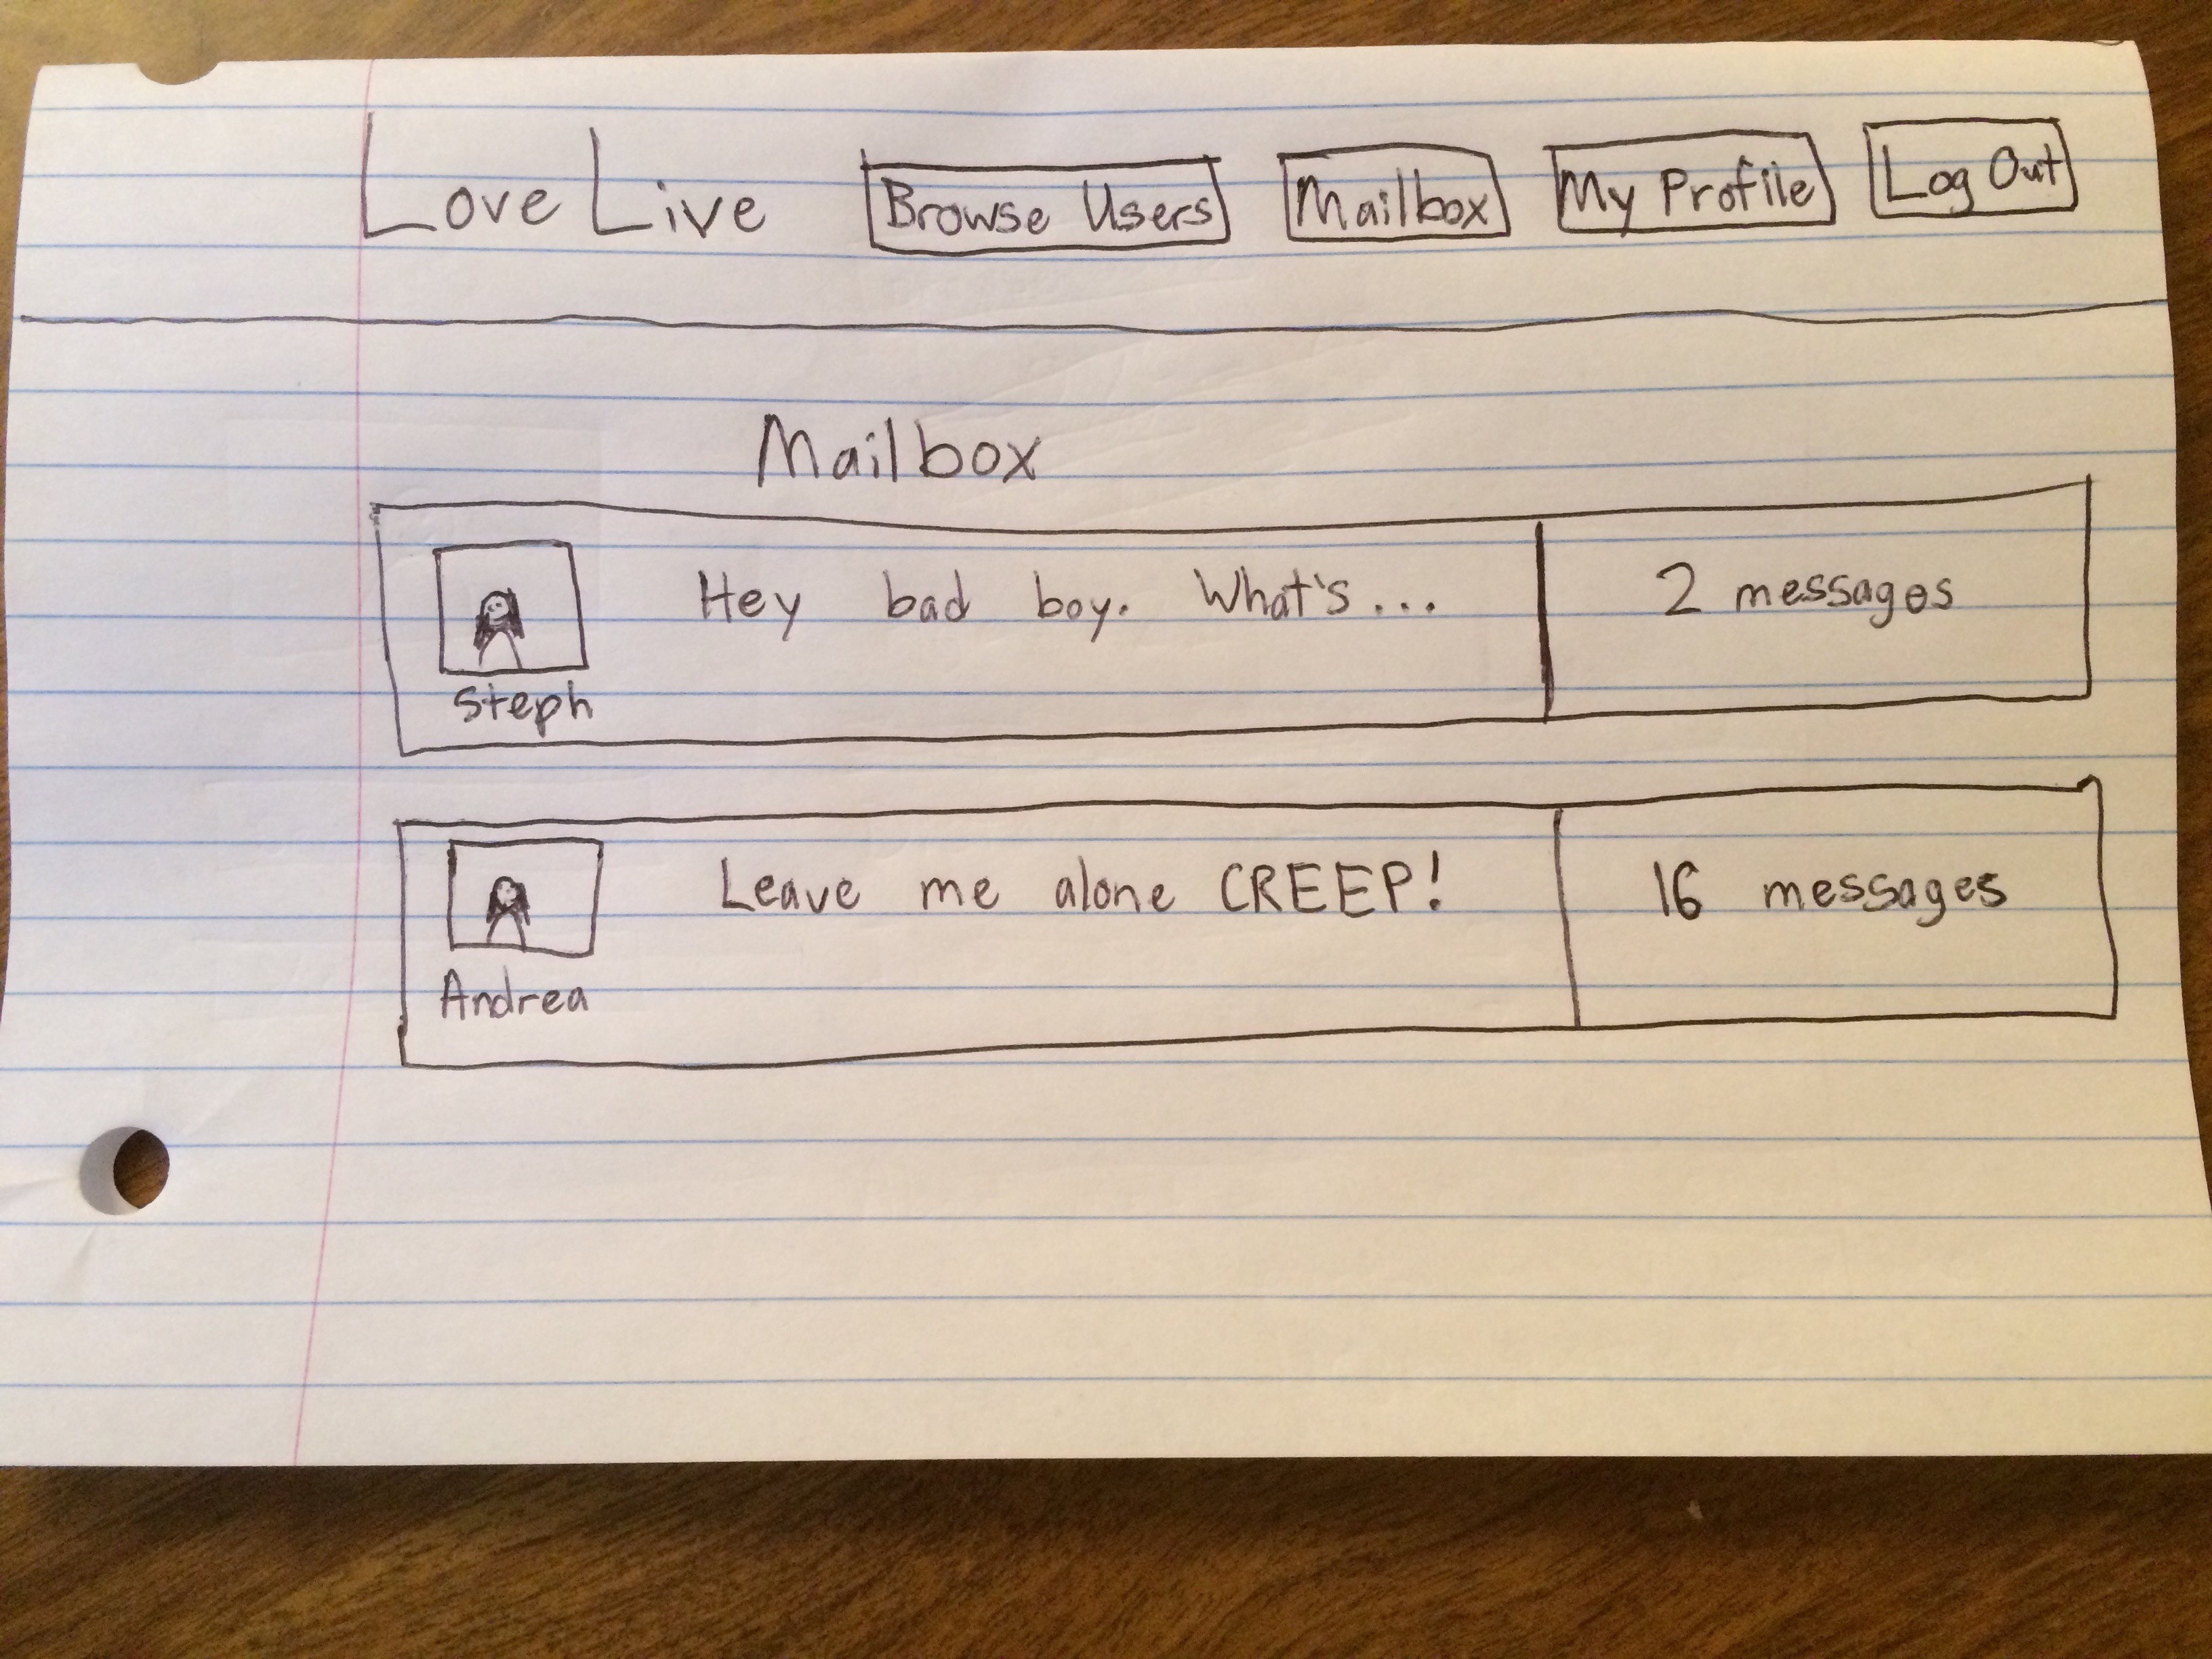 Love Live Browse Users Mailbox My Profile Log Out
Mailbox
Hey bad boy. What's... 2 messages
Steph
Leave me alone CREEP! 16 messages
Andrea